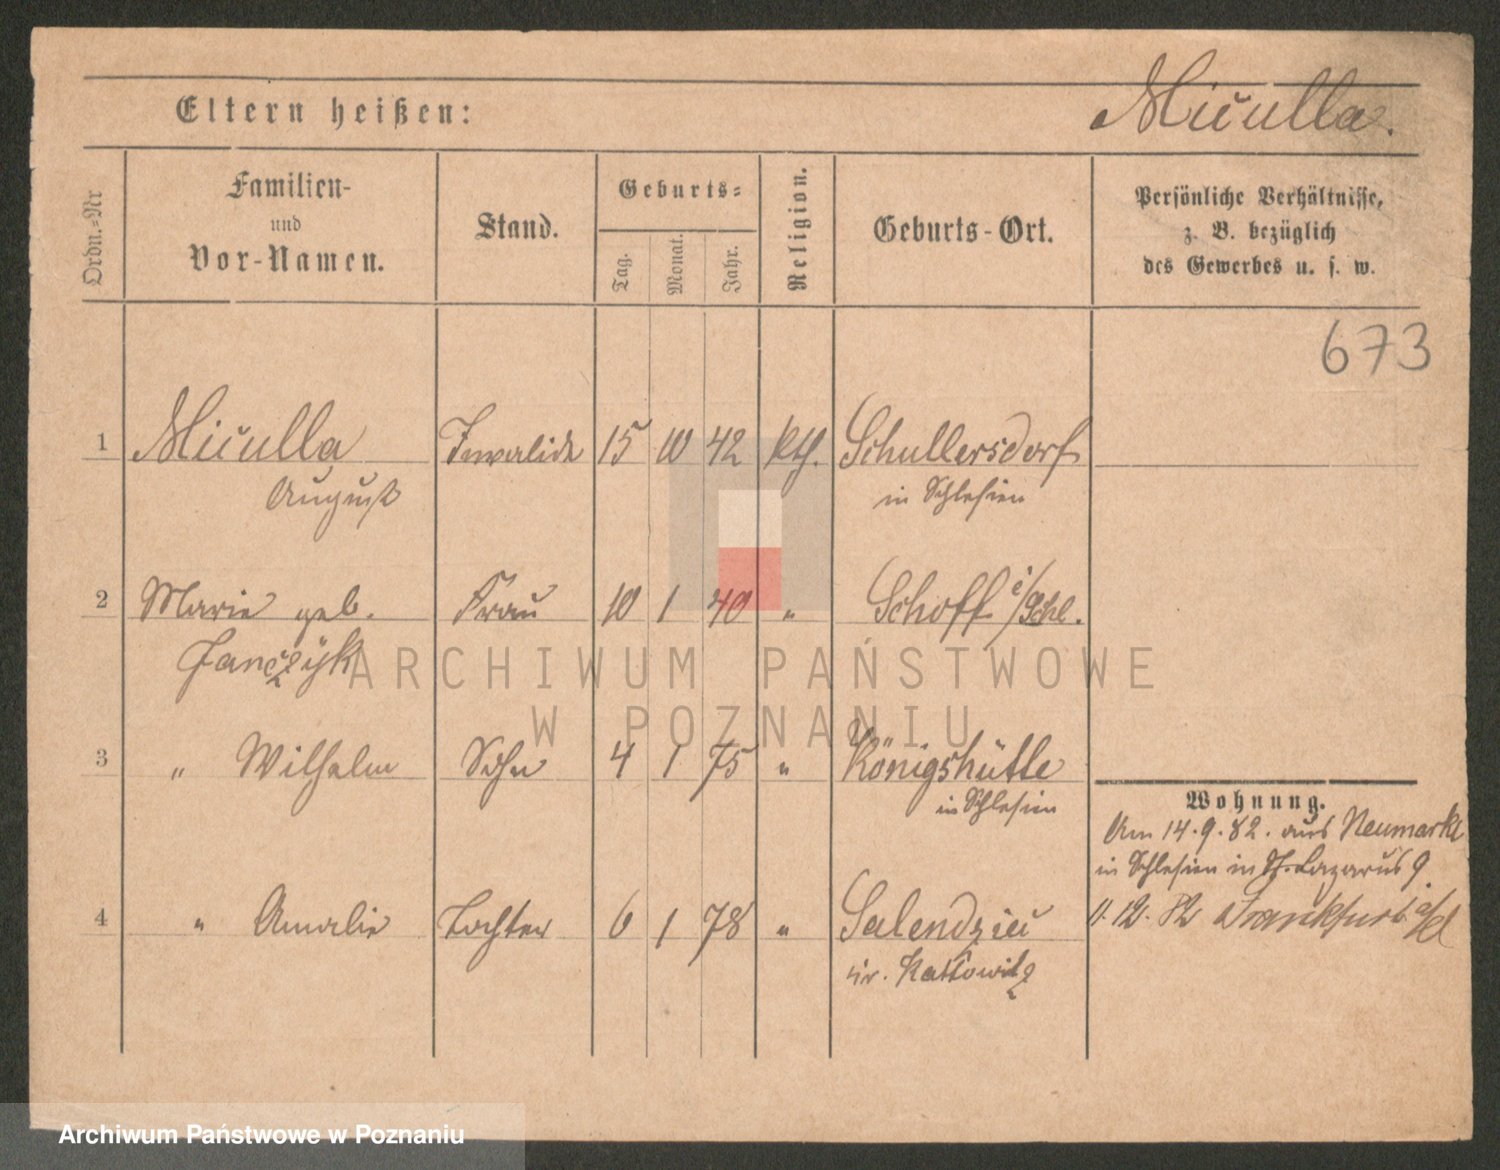 Eltern heißen: Miculla.
Ordn.=Nr
Familien-
und
Vor-Namen.
Stand.
Geburts=
Tag.
Monat.
Jahr.
Religion.
Geburts-Ort.
Persönliche Verhältnisse,
z. B. bezüglich
des Gewerbes u. s. w.
673
1 Miculla Invalide 15 10 42 kth. Schullersdorf
August in Schlesien
2 Marie geb. Frau 10 1 40 " Schoff i/Schl.
Janczyk
ARCHIWUM PAŃSTWOWE
W POZNANIU
3 " Wilhelm Sohn 4 1 75 " Königshütte
in Schlesien
Wohnung.
Am 14.9.82. aus Neumarkt
in Schlesien in St. Lazarus 9
4 " Amalie Tochter 6 1 78 " Salendzie
kr. Kattowitz
11.12.82 Frankfurt a/d
Archiwum Państwowe w Poznaniu